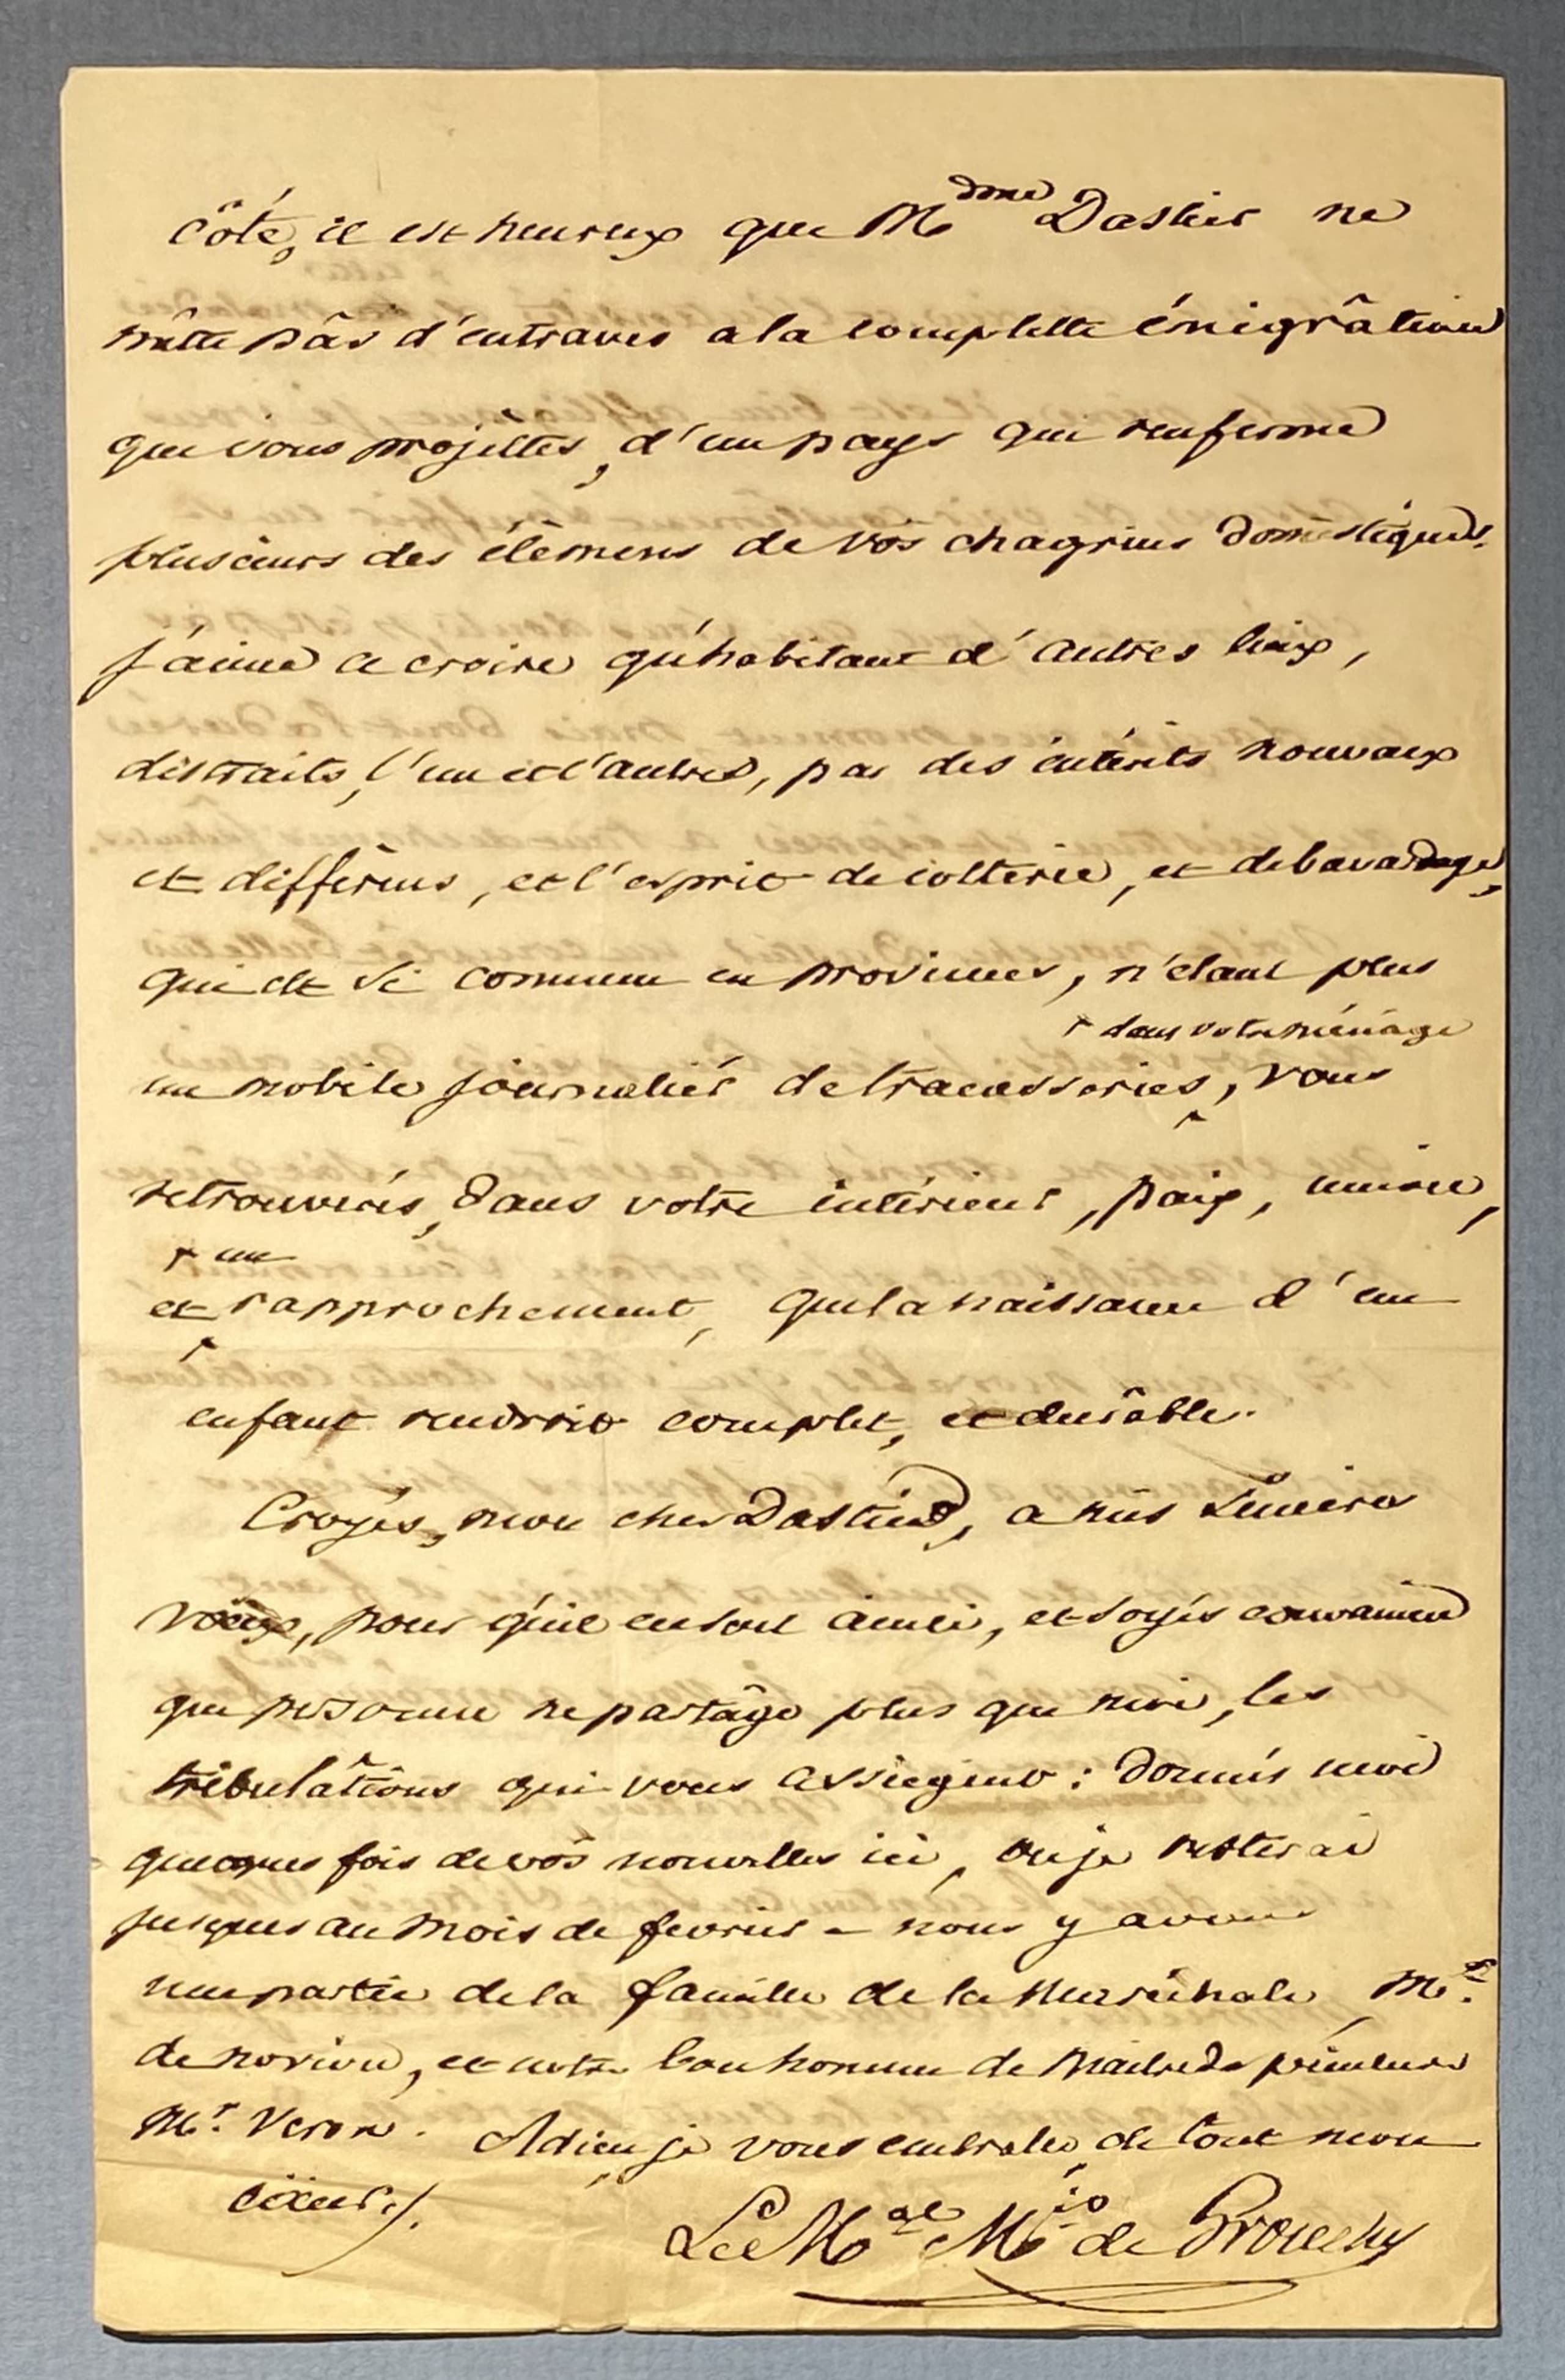 côté, il est heureux que M^dme Dastier ne
mette pâs d'entraves a la complette émigrâtion
que vous projettés, d'un pays qui renferme
plusieurs des élèmens de vos chagrins domestiques.
J'aime a croire qu'habitant d'autres lieux,
distraits, l'un et l'autre, par des intérêts nouvaux
et différens, et l'esprit de cotterie, et de bavardage,
qui est si commun en provinces, n'étant plus
+ dans votre ménage
un mobile journalier de tracasseries, vous
retrouverés, dans votre intérieur, paix, union,
+ un
et rapprochement, que la naissance d'un
enfant rendroit complet, et durâble.
Croyés, mon cher Dastier, a mes sincères
vœux, pour qu'il en soit ainsi, et soyés convaincu
que personne ne partâge plus que moi, les
tribulâtions qui vous assiegent : donnés moi
quelques fois de vos nouvelles ici, ou je resterai
jusques au mois de fevrier - nous y avons
une partie de la famille de la Maréchale,
de et notre bon homme de
Mr. Veron. Adieu je vous embrasse de tout mon
cœur ./.
Le Mal Mis de Grouchy